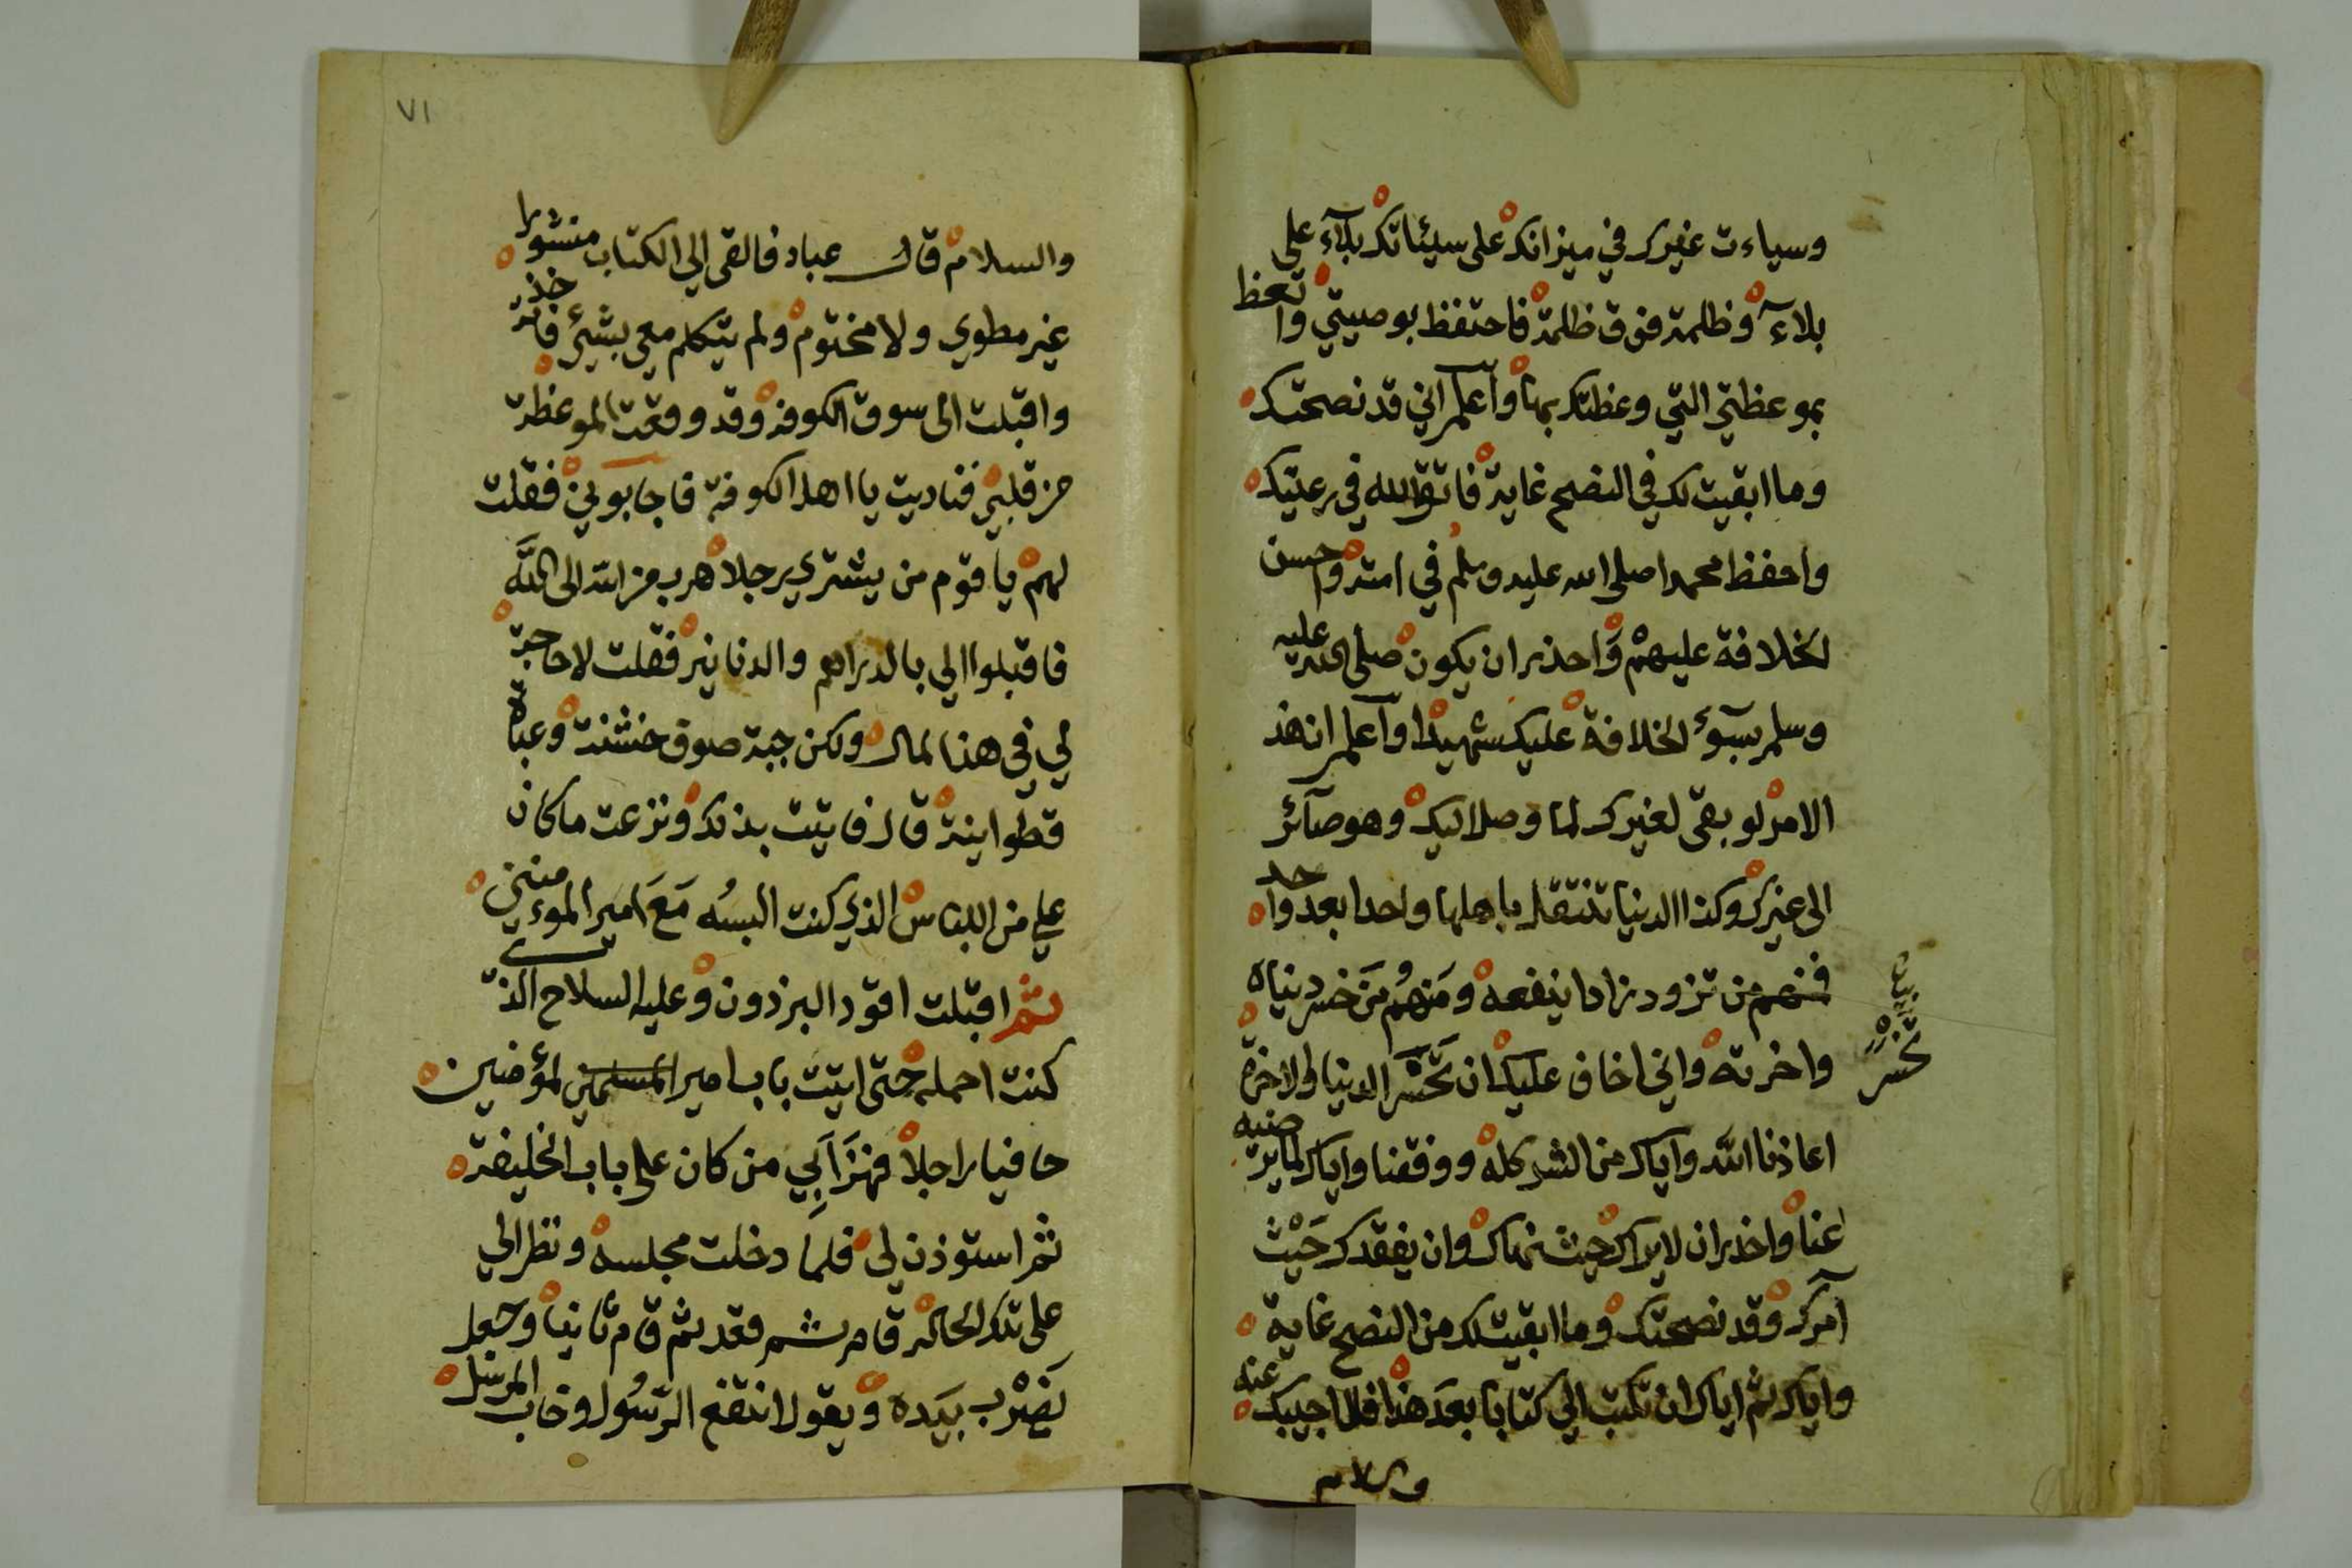 وسياءت غيرك في ميزانك على سيئاتك بلآء على
بلاءٓ وظلمة فوق ظلمة فاحتفظ بوصيتي واتعظ
بموعظتي التي وعظتك بها واعلم اني قد نصحتك
وما ابقيت لك في النصح غاية فاتق الله في رعيتك
واحفظ محمدا صلى الله عليه وسلم في امته واحسن
لخلافة عليهم واحذر ان يكون صلى الله عليه
وسلم بسوء الخلافة عليك شهيدا واعلم ان هذ
الامر لو بقى لغيرك لما وصل اليك وهو صآئر
الى غيرك وكذا الدنيا تنتقل باهلها واحدا بعد واحد
فمنهم من تزود زادا ينفعه ومنهم من خسر دنياه
واخرته واني اخاف عليك ان تخسر الدنيا والاخرة
بيان
تخسر
اعاذنا الله واياك من الشر كله ووفقنا واياك لما يرضيه
عنا واحذر ان لا يراك حيث نهاك وان يفقدك حَيْث
آمرك وقد نصحتك وما ابقيت لك من النصح غاية
واياك ثم اياك ان تكتب الي كتابا بعد هذا فلا اجيبك عنه
والسلام
٧١
والسلام قال عباد فالقى الي الكتاب منشورا
غير مطوي ولا مختوم ولم يتكلم معي بشيء فاخذته
واقبلت الى سوق الكوفة وقد وقعت الموعظة
من قلبي فناديت يا اهل الكوفة فاجابوني فقلت
لهم يا قوم من يشتري رجلا هرب من الله الى الله
فاقبلوا الي بالدراهم والدنانير فقلت لا حاجة
لي في هذا المال ولكن جبة صوف خشنة وعباة
قطوانية قال فاتيت بذلك ونزعت ما كان
علي من اللباس الذي كنت البسُه مَعَ امير الموءمنين
ثم اقبلت اقود البرذون وعليه السلاح الذي
كنت احمله حتى اتيت باب امير المسلمين لمؤمنين
حافيا راجلا فهزَأ بِي من كان على باب الخليفة
ثم استوذن لي فلما دخلت مجلسه ونظر الي
على تلك الحالة قام ثم قعد ثم قام ثانيا وجعل
يَضْرب بيَده ويقول انتفع الرّسُول وخاب المرسل